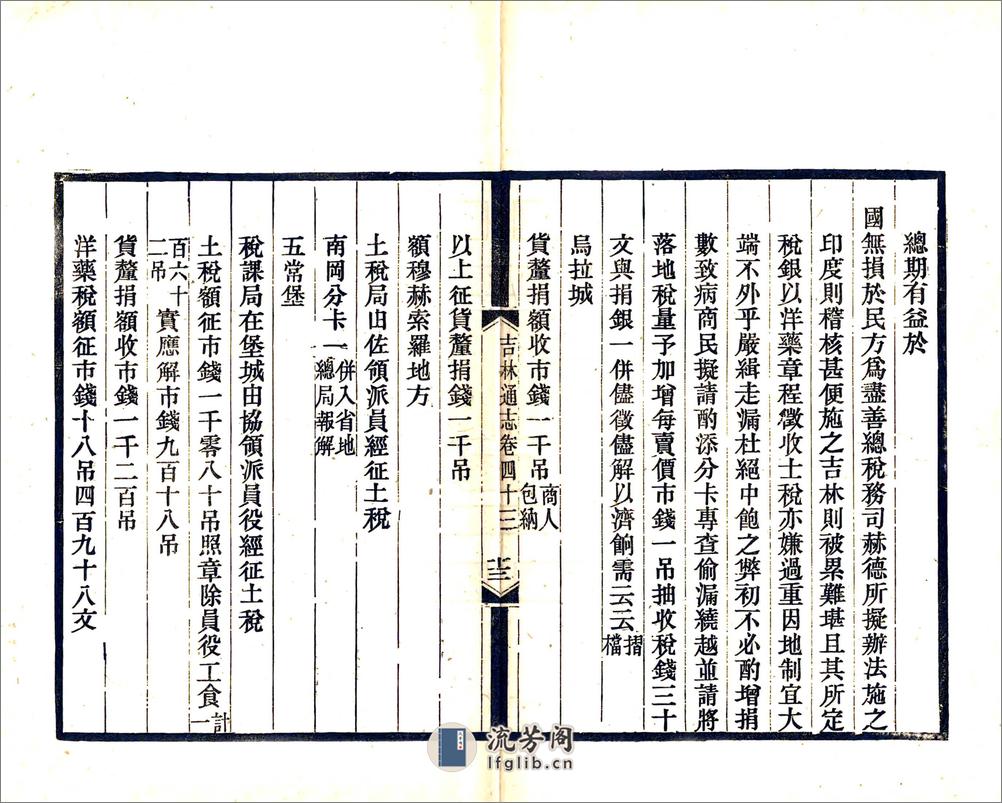 總期有益於
國無損於民方爲盡善總稅務司赫德所擬辦法施之
印度則稽核甚便施之吉林則被累難堪且其所定
稅銀以洋藥章程徵收土稅亦嫌過重因地制宜大
端不外乎嚴緝走漏杜絕中飽之弊初不必酌增捐
數致病商民擬請酌添分卡專查偷漏繞越並請將
落地稅量予加增每賣價市錢一吊抽收稅錢三十
文與捐銀一併儘徵儘解以濟餉需云云摺檔
烏拉城
貨釐捐額收市錢一千吊商人包納
吉林通志卷四十三 十三
以上征貨釐捐錢一千吊
額穆赫索羅地方
土稅局由佐領派員經征土稅
南岡分卡一併入省地總局報解
五常堡
稅課局在堡城由協領派員役經征土稅
土稅額征市錢一千零八十吊照章除員役工食計一
百六十二吊實應解市錢九百十八吊
貨釐捐額收市錢一千二百吊
洋藥稅額征市錢十八吊四百九十八文
流芳阁
lfglib.cn